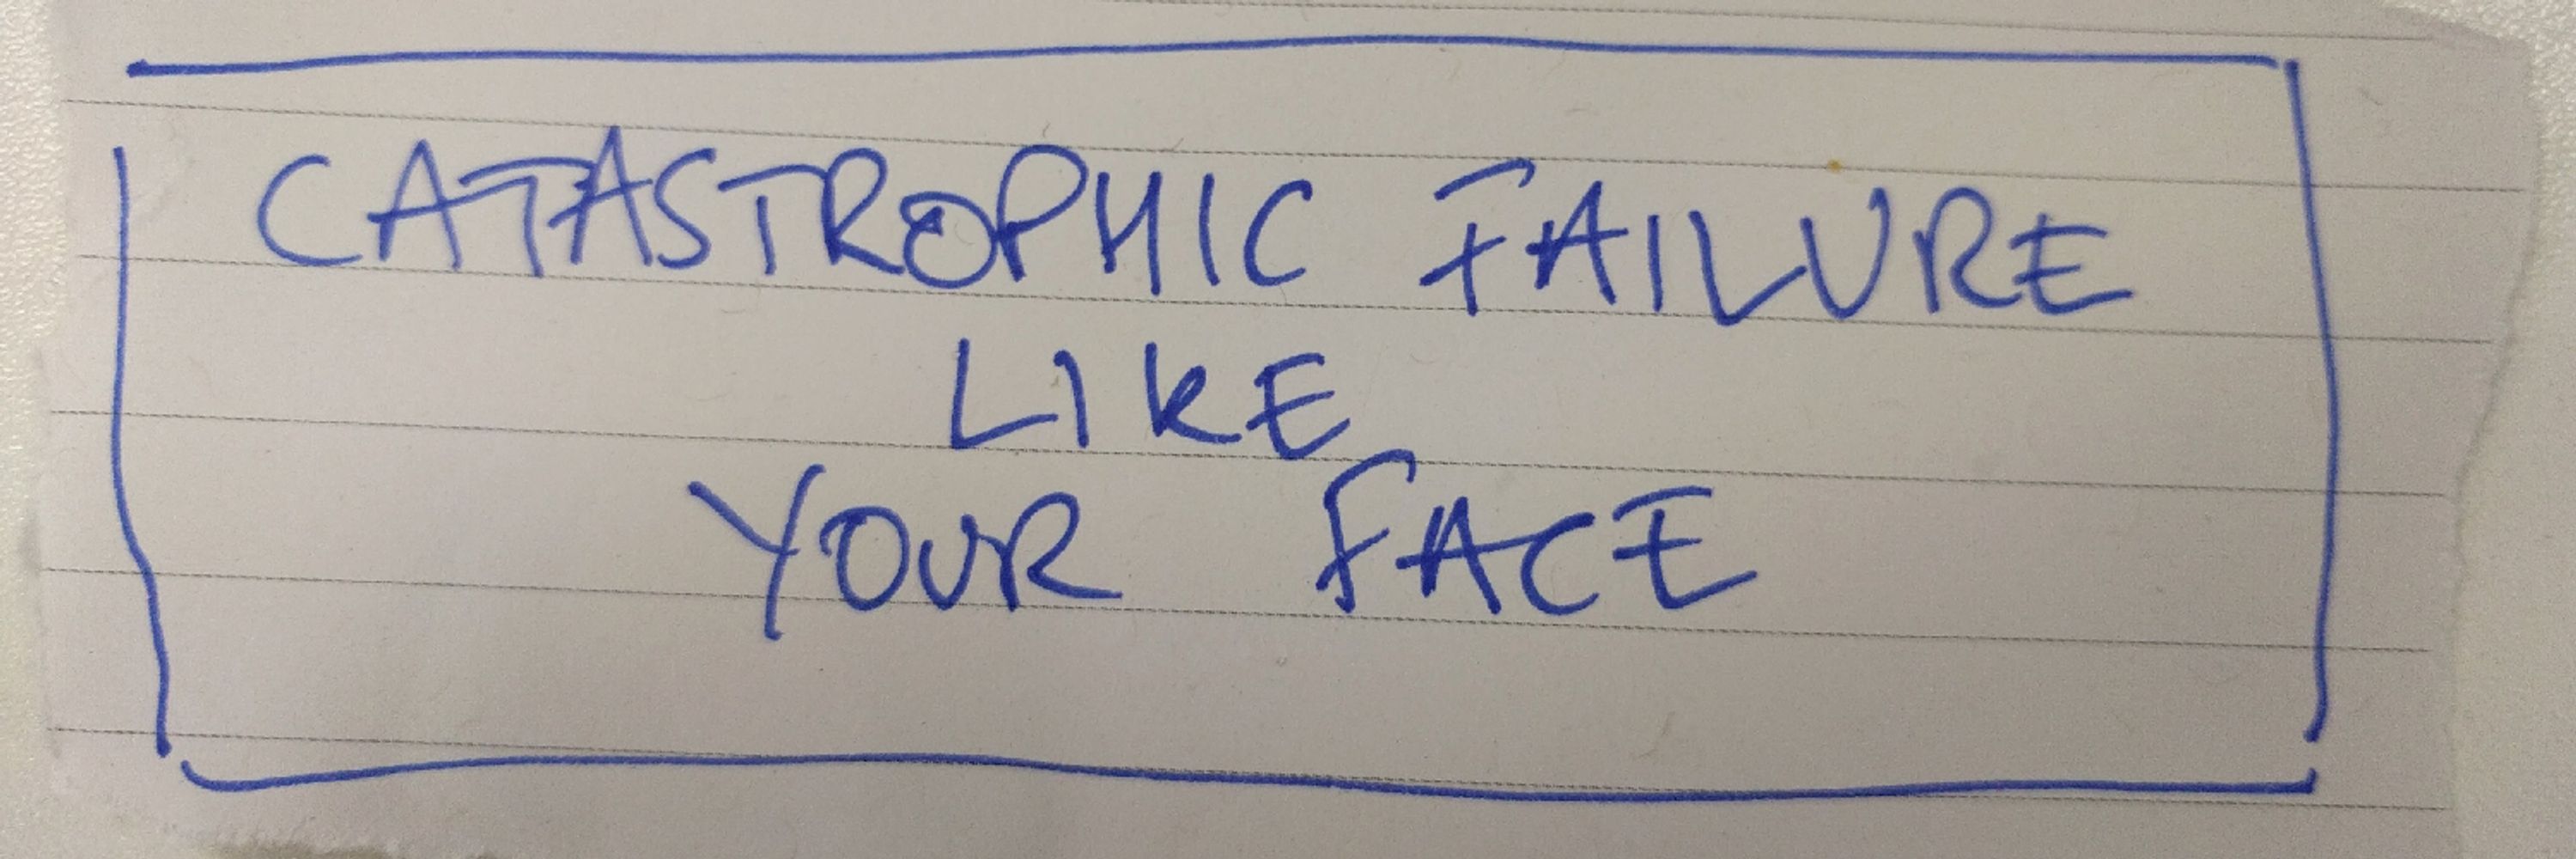 CATASTROPHIC FAILURE
LIKE
YOUR FACE